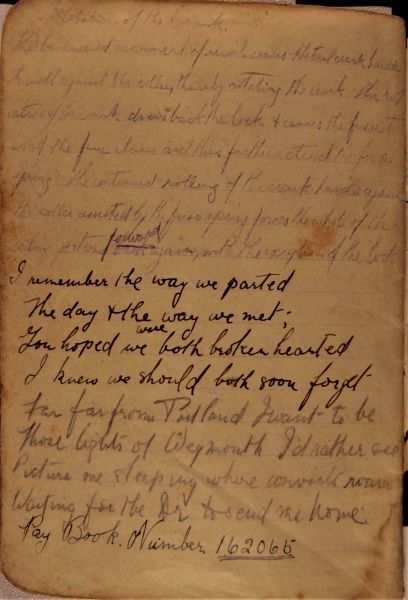 Rotation of the Crank.
The backward movement of recoil causes the tail crank handle
to roll against the roller thereby rotating the crank. The rot
ation of the crank draws back the lock & causes the fusee to
and the fusee chain and thus further extend the fusee
spring. The continued rolling of the crank handle again
the roller assisted by the fusee spring forces the whole of the
portion forward again, with the exception of the lock
I remember the way we parted
The day & the way we met;
You hoped we were both broken hearted
I knew we should both soon forget
Far far from Portland I want to be
Those lights of Weymouth I'd rather see
Picture me sleeping where convicts roam
Waiting for the Dr to send me home
Pay Book. Number 162065